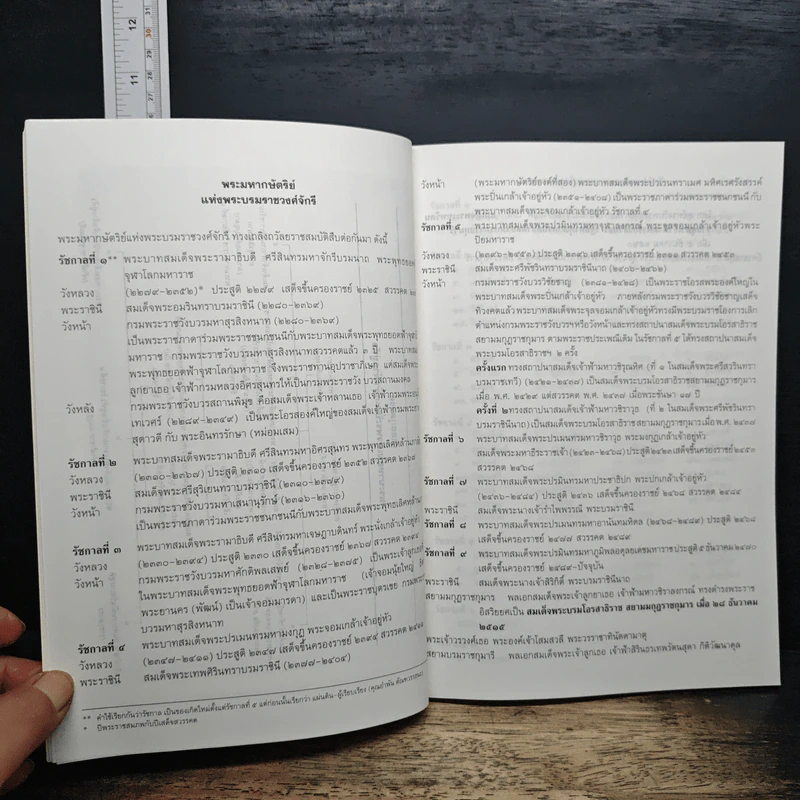 พระมหากษัตริย์
แห่งพระบรมราชวงศ์จักรี
พระมหากษัตริย์แห่งพระบรมราชวงศ์จักรี ทรงเถลิงถวัลยราชสมบัติสืบต่อกันมา ดังนี้
รัชกาลที่ ๑** พระบาทสมเด็จพระรามาธิบดี ศรีสินทรมหาจักรีบรมนาถ พระพุทธยอดฟ้า
จุฬาโลกมหาราช
วังหลวง (๒๒๗๙-๒๓๕๒)* ประสูติ ๒๒๗๙ เสด็จขึ้นครองราชย์ ๒๓๒๕ สวรรคต ๒๓๕๒
พระราชินี สมเด็จพระอมรินทราบรมราชินี (๒๒๘๐-๒๓๖๙)
วังหน้า กรมพระราชวังบวรมหาสุรสิงหนาท (๒๒๘๐-๒๓๔๖)
เป็นพระราชภาดาร่วมพระราชชนกชนนีกับพระบาทสมเด็จพระพุทธยอดฟ้าจุฬาโลก
มหาราช กรมพระราชวังบวรมหาสุรสิงหนาทสวรรคตแล้ว ๓ ปี พระบาทสมเด็จ
พระพุทธยอดฟ้าจุฬาโลกมหาราช จึงพระราชทานอุปราชาภิเษก แด่สมเด็จพระ
ลูกยาเธอ เจ้าฟ้ากรมหลวงอิศรสุนทรให้เป็นกรมพระราชวัง บวรสถานมงคล
วังหลัง กรมพระราชวังบวรสถานพิมุข คือสมเด็จพระเจ้าหลานเธอ เจ้าฟ้ากรมพระ
เทเวศร์ (๒๒๘๙-๒๓๔๙) เป็นพระโอรสองค์ใหญ่ของสมเด็จเจ้าฟ้ากรมพระยาเทพ
สุดาวดี กับ พระอินทรรักษา (หม่อมเสม)
รัชกาลที่ ๒ พระบาทสมเด็จพระรามาธิบดี ศรีสินทรมหาอิศรสุนทร พระพุทธเลิศหล้านภาลัย
วังหลวง (๒๓๑๐-๒๓๖๗) ประสูติ ๒๓๑๐ เสด็จขึ้นครองราชย์ ๒๓๕๒ สวรรคต ๒๓๖๗
พระราชินี สมเด็จพระศรีสุริเยนทราบรมราชินี (๒๓๑๐-๒๓๗๙)
วังหน้า กรมพระราชวังบวรมหาเสนานุรักษ์ (๒๓๑๖-๒๓๖๐)
เป็นพระราชภาดาร่วมพระราชชนกชนนีกับพระบาทสมเด็จพระพุทธเลิศหล้านภาลัย
รัชกาลที่ ๓ พระบาทสมเด็จพระรามาธิบดี ศรีสินทรมหาเจษฎาบดินทร์ พระนั่งเกล้าเจ้าอยู่หัว
วังหลวง (๒๓๓๐-๒๓๙๔) ประสูติ ๒๓๓๐ เสด็จขึ้นครองราชย์ ๒๓๖๗ สวรรคต ๒๓๙๔
วังหน้า กรมพระราชวังบวรมหาศักดิพลเสพย์ (๒๓๒๘-๒๓๗๕) เป็นพระเจ้าลูกยาเธอ
ในพระบาทสมเด็จพระพุทธยอดฟ้าจุฬาโลกมหาราช (เจ้าจอมนุ้ยใหญ่
พระยานคร (พัฒน์) เป็นเจ้าจอมมารดา) และเป็นพระราชบุตรเขย กรมพระราชวัง
บวรมหาสุรสิงหนาท
รัชกาลที่ ๔ พระบาทสมเด็จพระปรเมนทรมหามงกุฎ พระจอมเกล้าเจ้าอยู่หัว
วังหลวง (๒๓๔๗-๒๔๑๑) ประสูติ ๒๓๔๗ เสด็จขึ้นครองราชย์ ๒๓๙๔ สวรรคต ๒๔๑๑
พระราชินี สมเด็จพระเทพศิรินทราบรมราชินี (๒๓๗๗-๒๔๐๔)
** คำใช้เรียกกันว่ารัชกาล เป็นของเกิดใหม่ตั้งแต่รัชกาลที่ ๕ แต่ก่อนนั้นเรียกว่า แผ่นดิน-ผู้เรียบเรียง
* ปีพระราชสมภพกับปีเสด็จสวรรคต
วังหน้า (พระมหากษัตริย์องค์ที่สอง) พระบาทสมเด็จพระปวเรนทราเมศ มหิศเรศรังสรรค์
พระปิ่นเกล้าเจ้าอยู่หัว (๒๓๕๑-๒๔๐๘) เป็นพระราชภาดาร่วมพระราชชนกชนนี กับ
พระบาทสมเด็จพระจอมเกล้าเจ้าอยู่หัว รัชกาลที่ ๔
รัชกาลที่ ๕ พระบาทสมเด็จพระปรมินทรมหาจุฬาลงกรณ์ พระจุลจอมเกล้าเจ้าอยู่หัวพระ
ปิยมหาราช
วังหลวง (๒๓๙๖-๒๔๕๓) ประสูติ ๒๓๙๖ เสด็จขึ้นครองราชย์ ๒๔๑๑ สวรรคต ๒๔๕๓
พระราชินี สมเด็จพระศรีพัชรินทราบรมราชินีนาถ (๒๔๐๖-๒๔๖๒)
วังหน้า กรมพระราชวังบวรวิไชยชาญ (๒๓๘๑-๒๔๒๘) เป็นพระราชโอรสพระองค์ใหญ่ใน
พระบาทสมเด็จพระปิ่นเกล้าเจ้าอยู่หัว ภายหลังกรมพระราชวังบวรวิชัยชาญเสด็จ
ทิวงคตแล้ว พระบาทสมเด็จพระจุลจอมเกล้าเจ้าอยู่หัว ทรงมีพระบรมราชโองการเลิก
ตำแหน่งกรมพระราชวังบวรฯหรือวังหน้าและทรงสถาปนาสมเด็จพระบรมโอรสาธิราช
สยามมกุฎราชกุมาร ตามพระราชประเพณีเดิม ในรัชกาลที่ ๕ ได้ทรงสถาปนาสมเด็จ
พระบรมโอรสาธิราชฯ ๒ ครั้ง
ครั้งแรก ทรงสถาปนาสมเด็จเจ้าฟ้ามหาวชิรุณหิศ (ที่ ๑ ในสมเด็จพระศรีสวรินทิรา
บรมราชเทวี) (๒๔๒๑-๒๔๓๗) เป็นสมเด็จพระบรมโอรสาธิราชสยามมกุฎราชกุมาร
เมื่อ พ.ศ. ๒๔๒๙ แต่สวรรคต พ.ศ. ๒๔๓๗ เมื่อพระชันษา ๑๗ ปี
ครั้งที่ ๒ทรงสถาปนาสมเด็จเจ้าฟ้ามหาวชิราวุธ (ที่ ๒ ในสมเด็จพระศรีพัชรินทรา
บรมราชินีนาถ)เป็นสมเด็จพระบรมโอรสาธิราช สยามมกุฎราชกุมารเมื่อ พ.ศ. ๒๔๓๗
รัชกาลที่ ๖ พระบาทสมเด็จพระปรเมนทรมหาวชิราวุธ พระมงกุฎเกล้าเจ้าอยู่หัว
สมเด็จพระมหาธีระราชเจ้า (๒๔๒๓-๒๔๖๘)ประสูติ๒๔๒๓เสด็จขึ้นครองราชย์๒๔๕๓
สวรรคต ๒๔๖๘
รัชกาลที่ ๗ พระบาทสมเด็จพระปรมินทรมหาประชาธิปก พระปกเกล้าเจ้าอยู่หัว
(๒๔๓๖-๒๔๘๔) ประสูติ ๒๔๓๖ เสด็จขึ้นครองราชย์ ๒๔๖๘ สวรรคต ๒๔๘๔
พระราชินี สมเด็จพระนางเจ้ารำไพพรรณี พระบรมราชินี
รัชกาลที่ ๘ พระบาทสมเด็จพระปรเมนทรมหาอานันทมหิดล (๒๔๖๘-๒๔๘๙) ประสูติ ๒๔๖๘
เสด็จขึ้นครองราชย์ ๒๔๗๗ สวรรคต ๒๔๘๙
รัชกาลที่ ๙ พระบาทสมเด็จพระปรมินทรมหาภูมิพลอดุลยเดชมหาราช ประสูติ ๕ ธันวาคม ๒๔๗๐
เสด็จขึ้นครองราชย์ ๒๔๘๙-ปัจจุบัน
พระราชินี สมเด็จพระนางเจ้าสิริกิติ์ พระบรมราชินีนาถ
สยามมกุฎราชกุมาร พลเอกสมเด็จพระเจ้าลูกยาเธอ เจ้าฟ้ามหาวชิราลงกรณ์ ทรงดำรงพระราช
อิสริยยศเป็น สมเด็จพระบรมโอรสาธิราช สยามมกุฎราชกุมาร เมื่อ ๒๘ ธันวาคม
๒๕๑๕
พระเจ้าวรวงศ์เธอ พระองค์เจ้าโสมสวลี พระวรราชาทินัดดามาตุ
สยามบรมราชกุมารี พลเอกสมเด็จพระเจ้าลูกเธอ เจ้าฟ้าสิรินธรเทพรัตนสุดา กิติวัฒนาดุล
12
11
31
30
29
28